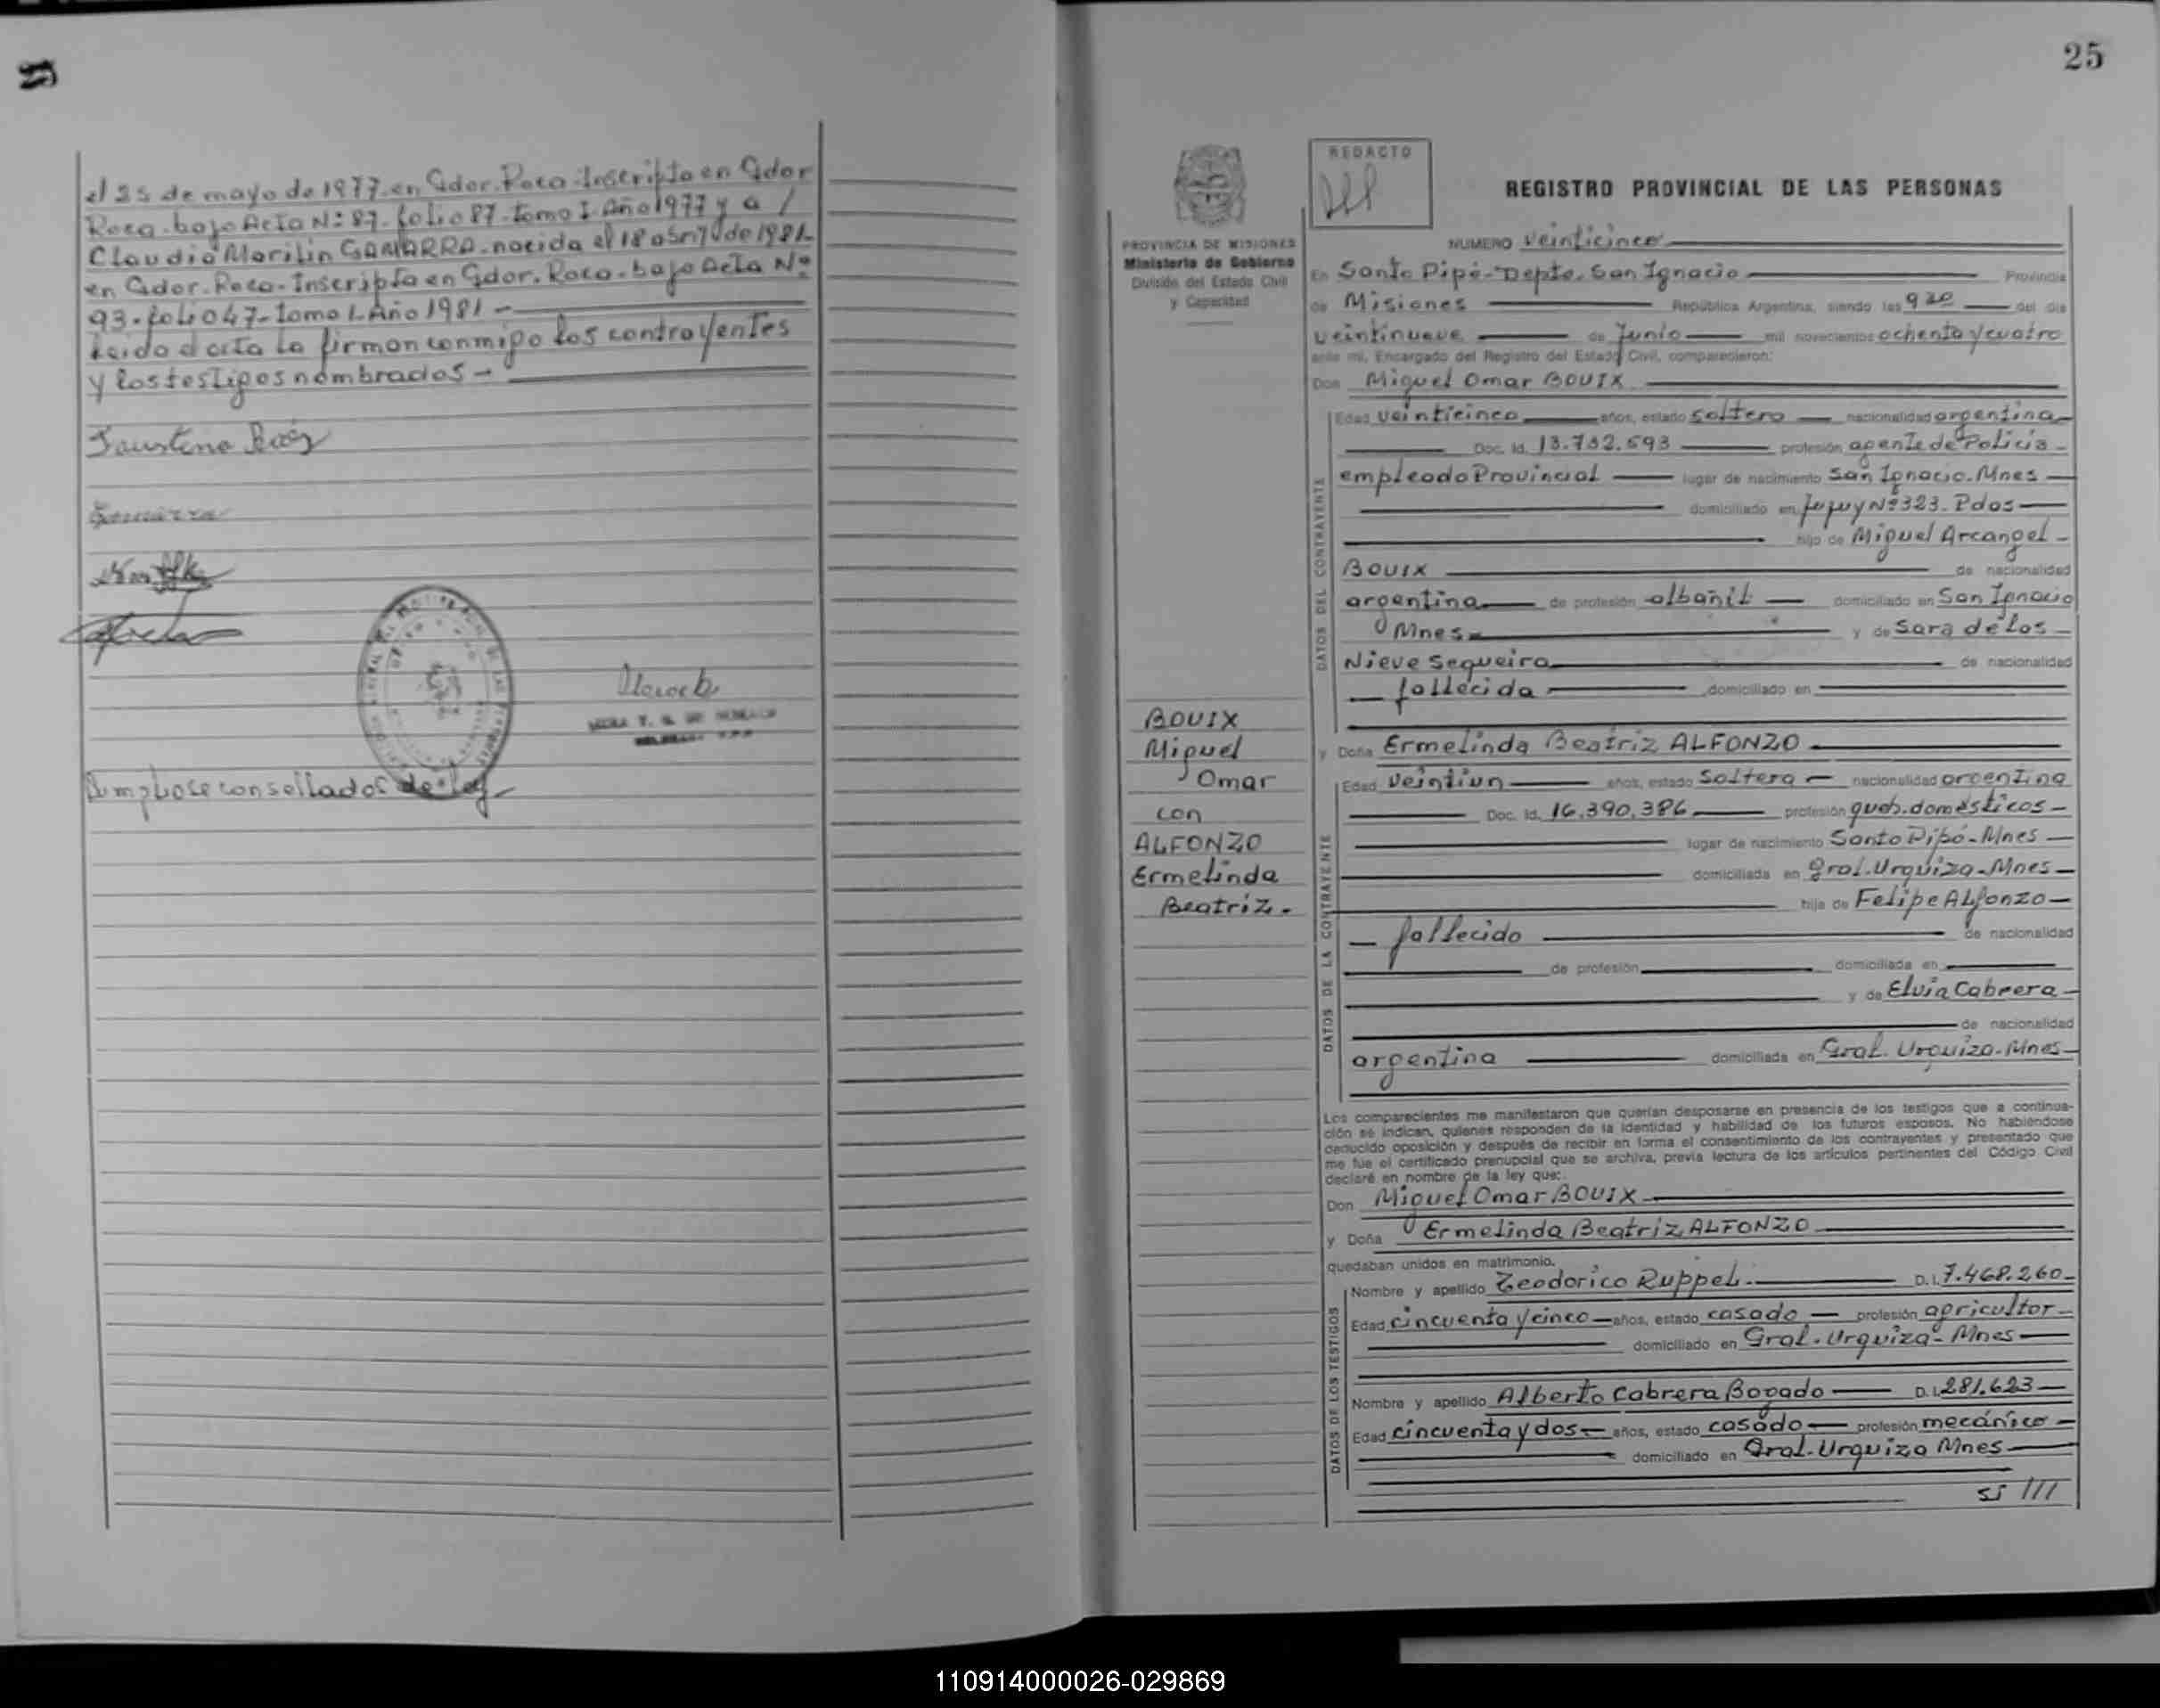 el 25 de mayo de 1977. en Gdor. Roca. Inscripto en Gdor
Roca. bajo Acta Nº 87. folio 87. tomo I. Año 1977 y a /
Claudia Marilin GAMARRA. nacida el 18 abril de 1981.
en Gdor. Roca. Inscripta en Gdor. Roca. bajo Acta Nº
93. folio 47. tomo I. Año 1981 -
Leida el acta la firman conmigo los contrayentes
y los testigos nombrados -
Faustino
con sellados de ley -
25
REDACTO
REGISTRO PROVINCIAL DE LAS PERSONAS
PROVINCIA DE MISIONES
Ministerio de Gobierno
División del Estado Civil
y Capacidad
NUMERO veinticinco
En Santo Pipó - Depto. San Ignacio Provincia
de Misiones República Argentina, siendo las 9 30 del día
veintinueve de Junio mil novecientos ochenta y cuatro
ante mí, Encargado del Registro del Estado Civil, comparecieron:
Don Miguel Omar BOUIX
DATOS DEL CONTRAYENTE
Edad veinticinco años, estado soltero nacionalidad argentina
Doc. Id. 13.732.593 profesión agente de Policía -
empleado Provincial lugar de nacimiento San Ignacio. Mnes
domiciliado en Jujuy Nº 323. Pdas
hijo de Miguel Arcangel -
BOUIX de nacionalidad
argentina de profesión albañil domiciliado en San Ignacio
Mnes y de Sara de los
Nieve Sequeira de nacionalidad
fallecida domiciliado en
BOUIX
Miguel
Omar
con
ALFONZO
Ermelinda
Beatriz -
y Doña Ermelinda Beatriz ALFONZO
DATOS DE LA CONTRAYENTE
Edad veintiun años, estado Soltera nacionalidad argentina
Doc. Id. 16.390.386 profesión queh. domésticos -
lugar de nacimiento Santo Pipó - Mnes
domiciliada en Gral. Urquiza - Mnes -
hija de Felipe Alfonzo -
fallecido de nacionalidad
de profesión domiciliada en
y de Elvia Cabrera -
de nacionalidad
argentina domiciliada en Gral. Urquiza - Mnes -
Los comparecientes me manifestaron que querían desposarse en presencia de los testigos que a continua-
ción se indican, quienes responden de la identidad y habilidad de los futuros esposos. No habiéndose
deducido oposición y después de recibir en forma el consentimiento de los contrayentes y presentado que
me fue el certificado prenupcial que se archiva, previa lectura de los artículos pertinentes del Código Civil
declaré en nombre de la ley que:
Don Miguel Omar BOUIX
y Doña Ermelinda Beatriz ALFONZO
quedaban unidos en matrimonio.
DATOS DE LOS TESTIGOS
Nombre y apellido Teodorico Ruppel D. I. 7.468.260 -
Edad cincuenta y cinco años, estado casado profesión agricultor
domiciliado en Gral. Urquiza - Mnes
Nombre y apellido Alberto Cabrera Bogado D. I. 281.623
Edad cincuenta y dos años, estado casado profesión mecánico -
domiciliado en Gral. Urquiza Mnes
si ///
110914000026-029869